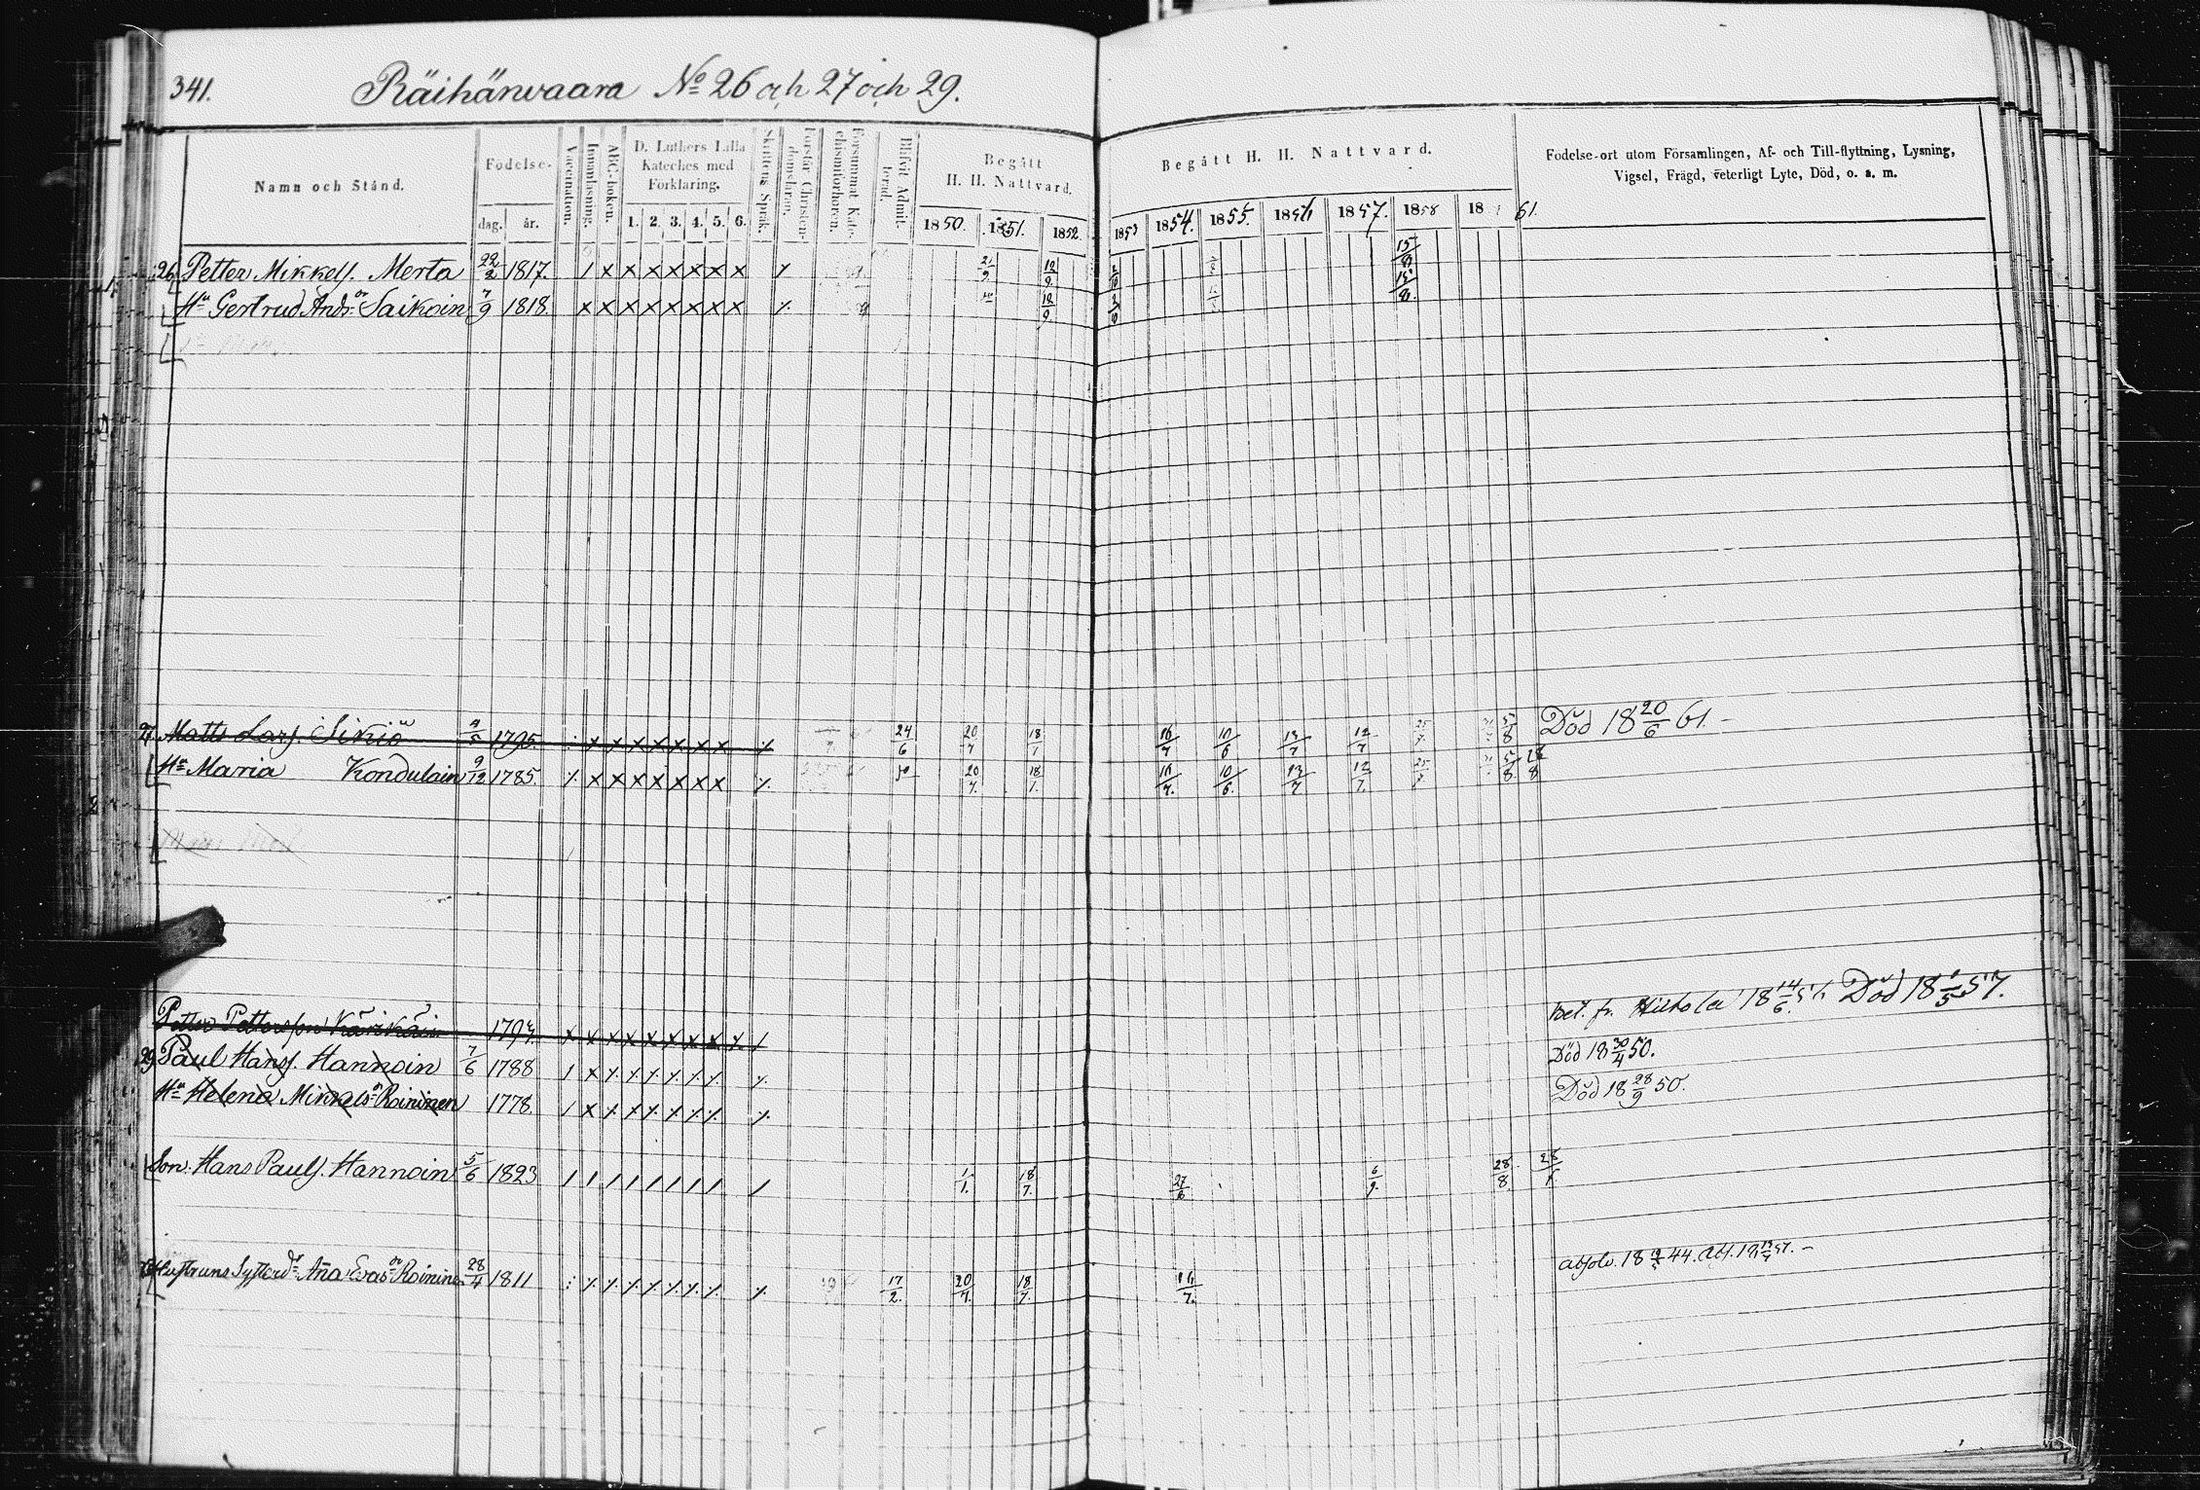 341. Räihänvaara No 26 och 27 och 29.
Namn och Stånd.
Födelse-
dag. år.
Vaccination.
Innanläsning.
ABC-boken.
D. Luthers Lilla
Kateches med
Förklaring.
1. 2. 3. 4. 5. 6.
Skriftens Språk.
Förstår Christen-
domsläran.
Försummat Kate-
chismiförhören.
Blifvit Admit-
terad.
Begått
H. H. Nattvard.
1850. 1851. 1852
Begått H. H. Nattvard.
1853 1854. 1855. 1856 1857. 1858 18 61.
Födelse-ort utom Församlingen, Af- och Till-flyttning, Lysning,
Vigsel, Frägd, veterligt Lyte, Död, o. a. m.
26. Petter Mikkels. Merta 22/2 1817. 21/9 12/9 15/8
Hu Gertrud Andsdr Saikoin 7/9 1818. 12/9 15/8
27 Matts Lars. Sikiö 1795. 24/6 20/7 18/7 16/7 10/6 13/7 12/7 25/7 5/8 Död 18 20/6 61.
Hu Maria Kondulain 9/12 1785. 20/7. 18/7. 16/7. 10/6. 13/7 12/7. 5/8. 28/8
Petter Pettersson Kärikäin 1794. 18 14/6 Död 18 57.
29 Paul Hans. Hannoin 7/6 1788 Död 18 30/4 50.
Hu Helena Mikkelsdr Roininen 1778. Död 18 28/9 50.
Son. Hans Pauls. Hannoin 5/6 1823 1/1. 18/7. 27/8 6/9. 28/8
Hustruns Systerdr Aña Evasdr Roininen 28/4 1811 17/2. 20/7. 18/7. 16/7. absolv. 18 44.